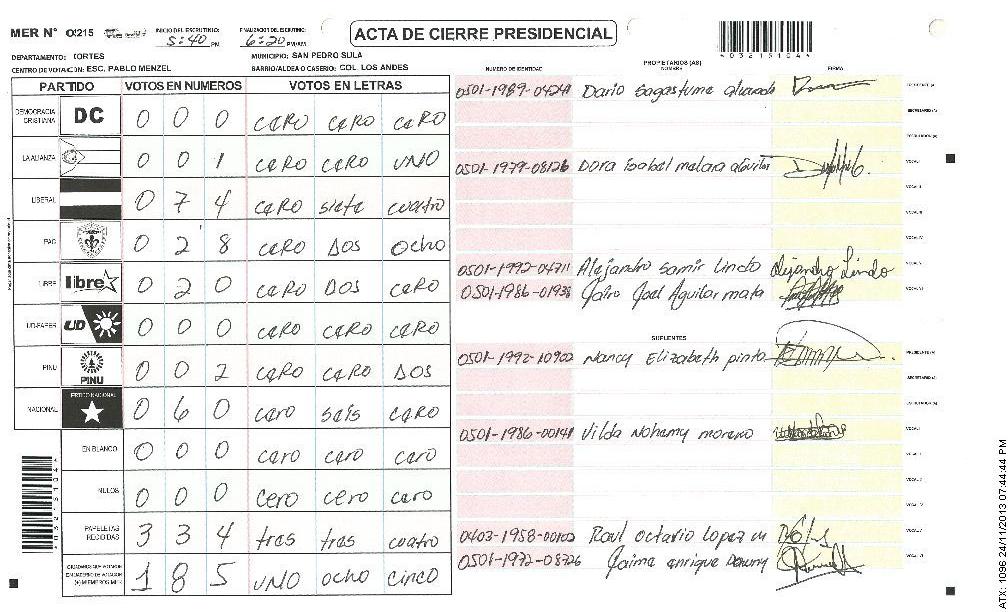 MER N° 0215 INICIO DEL ESCRUTINIO: 5:40 PM FINALIZACION DEL ESCRUTINIO: 6:20 PM/AM. ACTA DE CIERRE PRESIDENCIAL
DEPARTAMENTO: CORTES MUNICIPIO: SAN PEDRO SULA
CENTRO DE VOTACION: ESC. PABLO MENZEL BARRIO/ALDEA O CASERIO: COL. LOS ANDES
PARTIDO VOTOS EN NUMEROS VOTOS EN LETRAS
DEMOCRACIA CRISTIANA DC 0 0 0 CERO CERO CERO
LA ALIANZA 0 0 1 CERO CERO UNO
LIBERAL 0 7 4 CERO siete cuatro
PAC 0 2 8 CERO DOS Ocho
LIBRE libre 0 2 0 CERO DOS CERO
UD-FAPER UD 0 0 0 CERO CERO CERO
PINU PINU 0 0 2 CERO CERO DOS
NACIONAL PARTIDO NACIONAL 0 6 0 cero seis CERO
EN BLANCO 0 0 0 cero cero cero
NULOS 0 0 0 cero cero cero
PAPELETAS RECIBIDAS 3 3 4 tres tres cuatro
1 8 5 UNO ocho cinco
NUMERO DE IDENTIDAD PROPIETARIOS (AS) NOMBRE FIRMA
0501-1989-04241 Dario Sagastume
0501-1979-08126 Dora Isabel
0501-1992-04711 Alejandro Samir Lindo Alejandro Lindo
0501-1986-01938 Jairo Joel Aguilar mata
SUPLENTES
0501-1992-10902 Nancy Elizabeth pinto
0501-1986-00141 Vilda Nohemy moreno
0403-1958-00102 Raul octavio Lopez m
0501-1972-08726 Jaime enrique
ATX: 1096 24/11/2013 07:44:44 PM